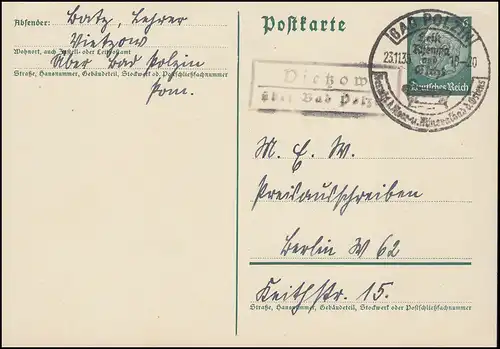 Absender: Batz, Lehrer
Vietzow
Wohnort, auch Zustell- oder Leitpostamt
Über Bad Polzin
Straße, Hausnummer, Gebäudeteil, Stockwerk od. Postschließfachnummer
Pom.
Postkarte
BAD POLZIN
23.11.35
Deutsches Reich
Vietzow
über Bad Polzin
M. E. W.
Preisausschreiben
Berlin W 62
Keithstr. 15.
Straße, Hausnummer, Gebäudeteil, Stockwerk oder Postschließfachnummer